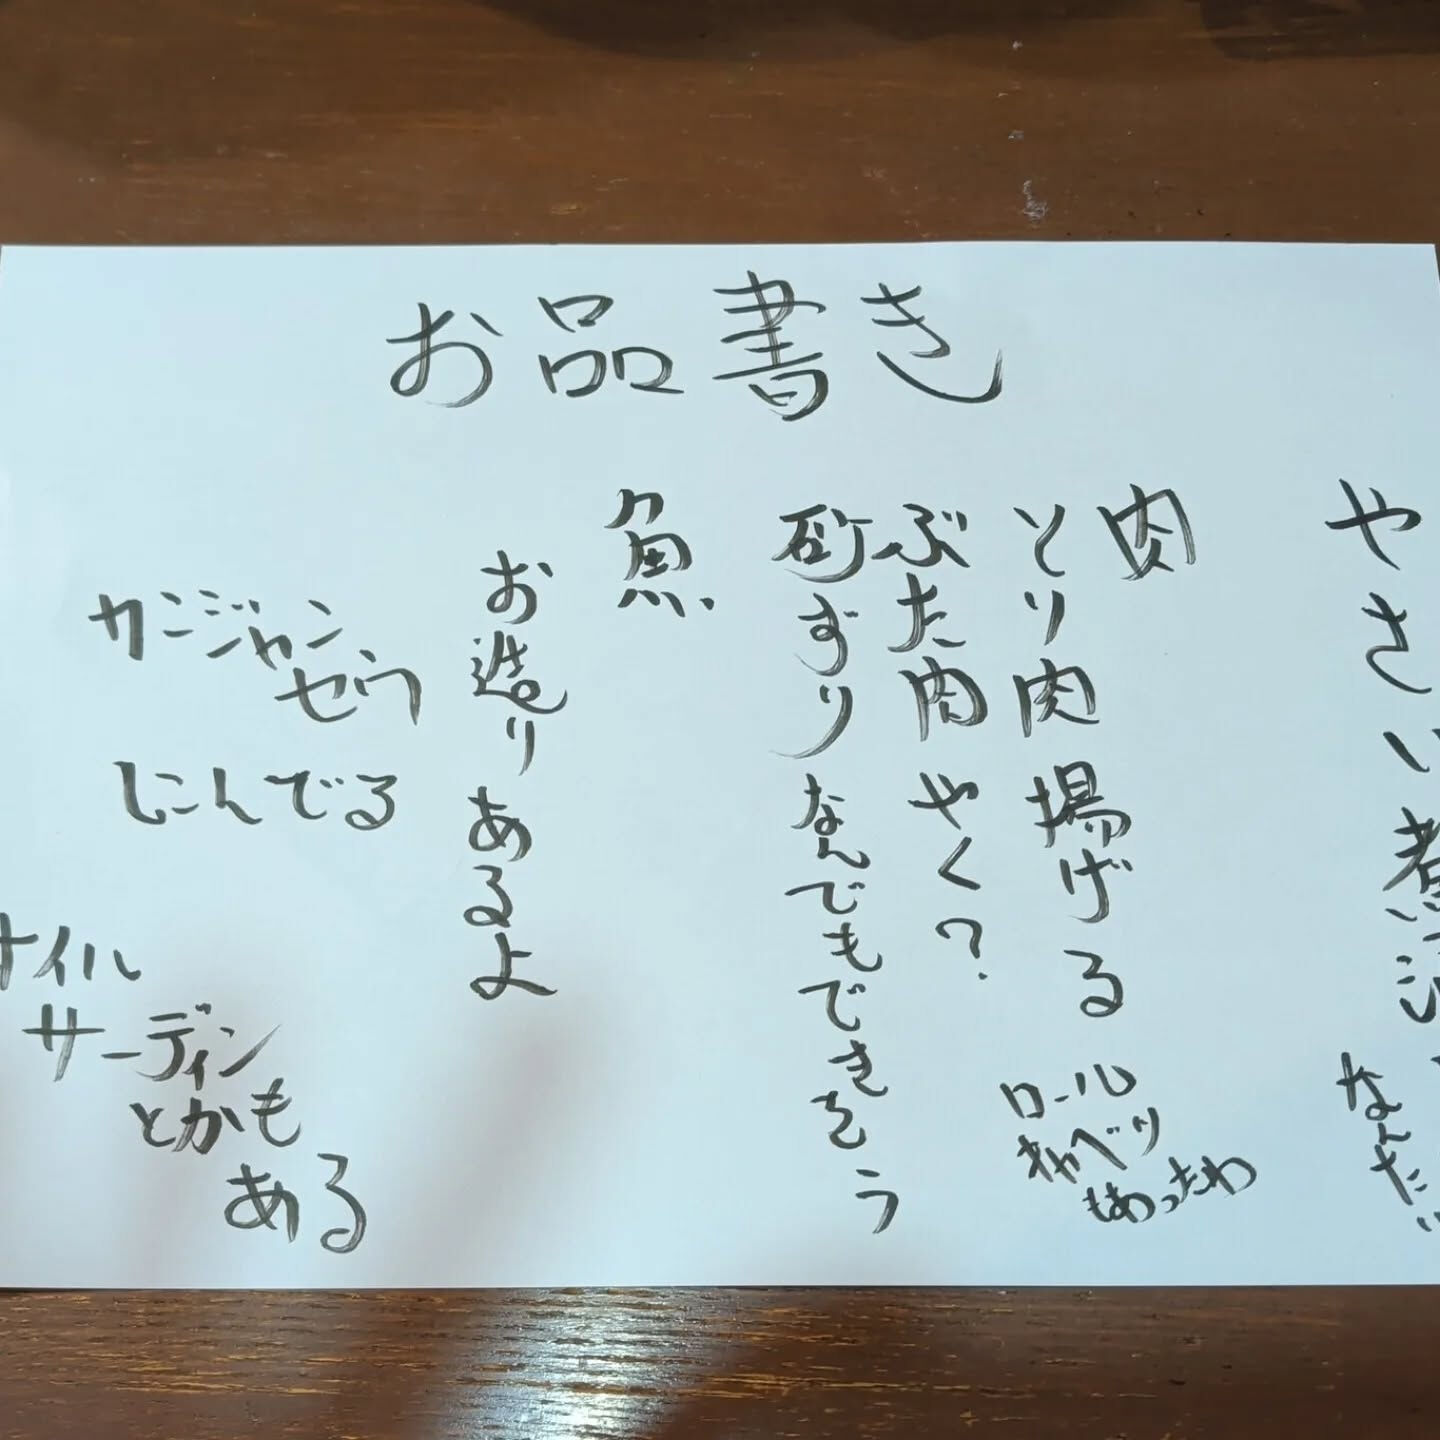 お品書き
やさい煮
なんだ
肉
とり肉 揚げる
ロール
キャベツ
もあったわ
ぶた肉 やく?
砂ずり なんでもできそう
魚
お造り あるよ
カンジャン
セウ
しこんでる
オイル
サーディン
とかも
ある